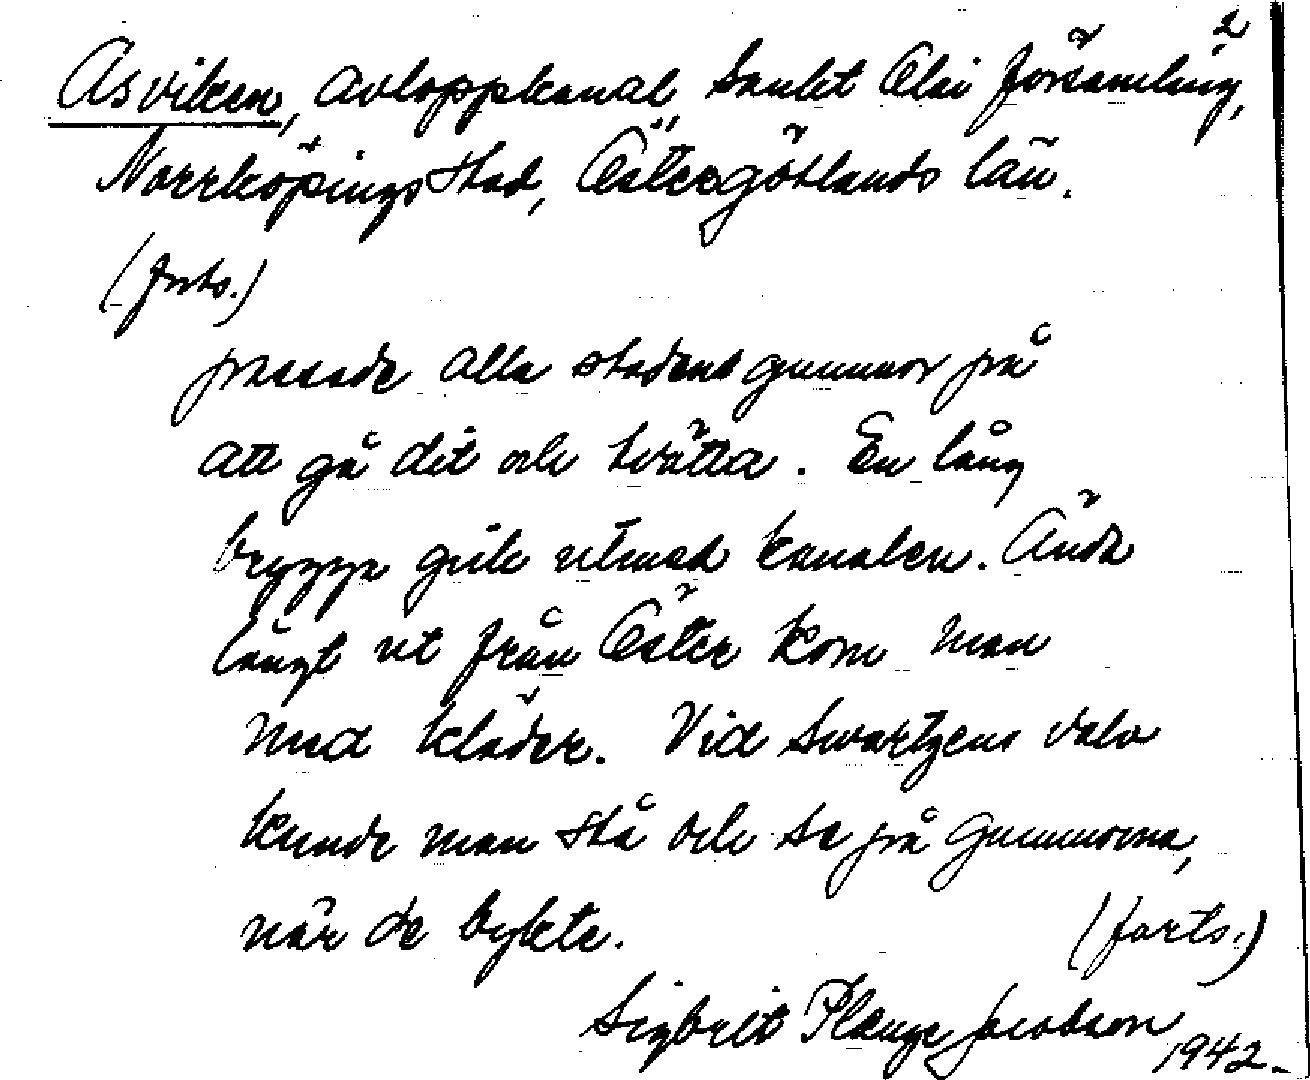 2
Asviken, avloppkanal, Sankt Olai församling,
Norrköpings stad, Östergötlands län.
(forts.)
passade alla stadens gummor på
att gå dit och tvätta. En lång
brygga gick utmed kanalen. Ända
långt ut från Öster kom man
med kläder. Vid Swartzens valv
kunde man stå och se på gummorna,
när de bykte. (forts.)
Sigbrit Plænge Jacobson
1942.